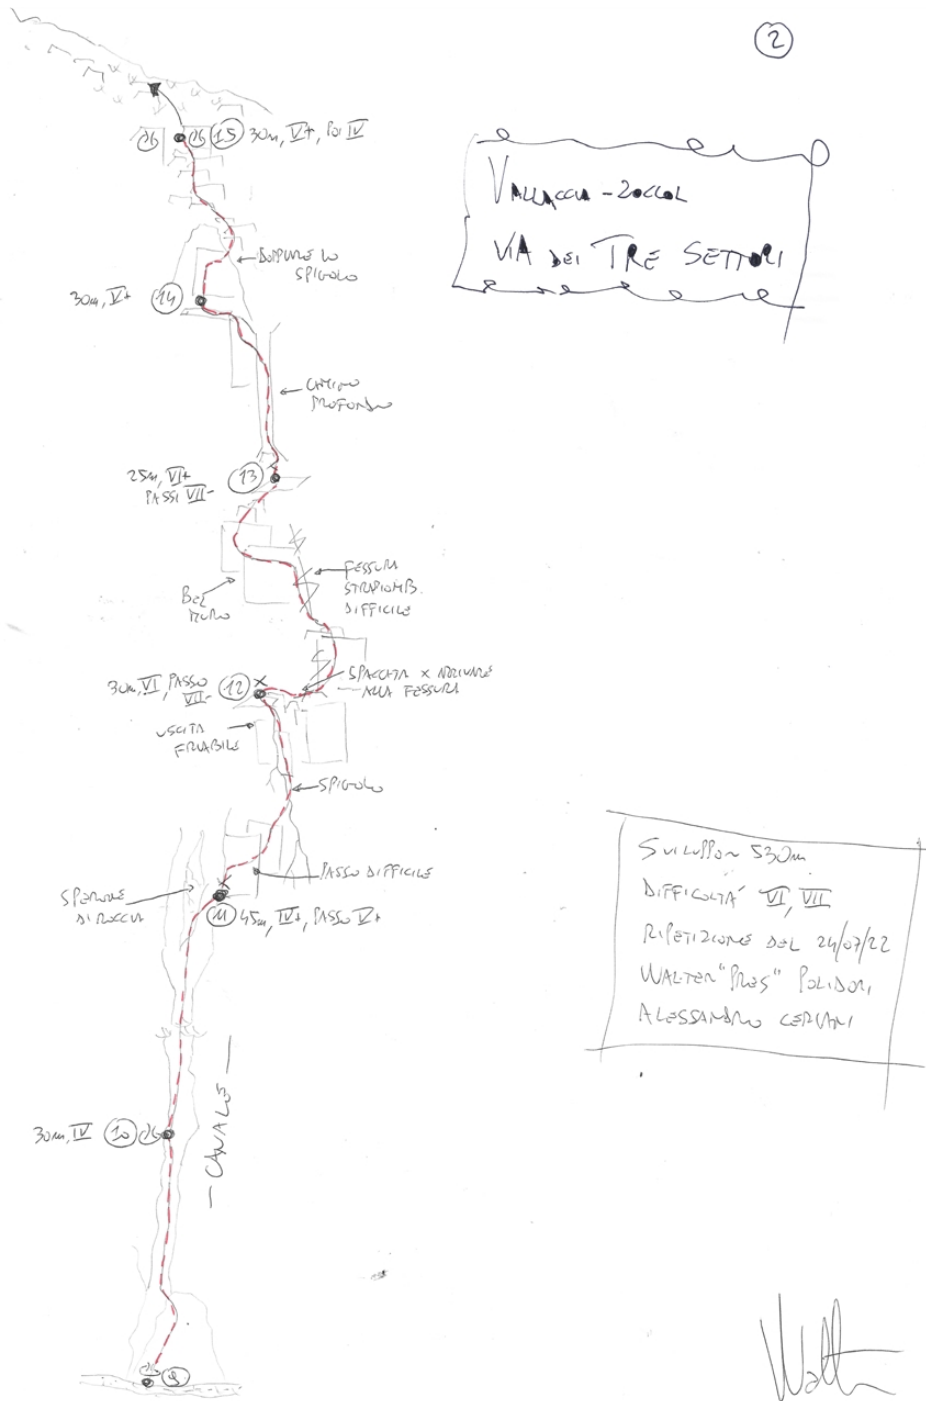 2
VALLACCIA - ZOCCOL
VIA DEI TRE SETTORI
15 30m, V+, POI IV
DOPPIARE LO
SPIGOLO
30m, V+ 14
CAMINO
PROFONDO
25m, VI+ 13
PASSI VII-
FESSURA
STRAPIOMB.
DIFFICILE
BEL
MURO
SPACCATA X ARRIVARE
ALLA FESSURA
30m, VI, PASSO 12
VII-
USCITA
FRIABILE
SPIGOLO
PASSO DIFFICILE
SPERONE
DI ROCCIA
11 45m, IV+, PASSO V+
30m, IV 10
- CANALE -
9
SVILUPPO 530m
DIFFICOLTA' VI, VII
RIPETIZIONE DEL 24/07/22
WALTER "PRES" POLIDORI
ALESSANDRO CERIANI
Walter